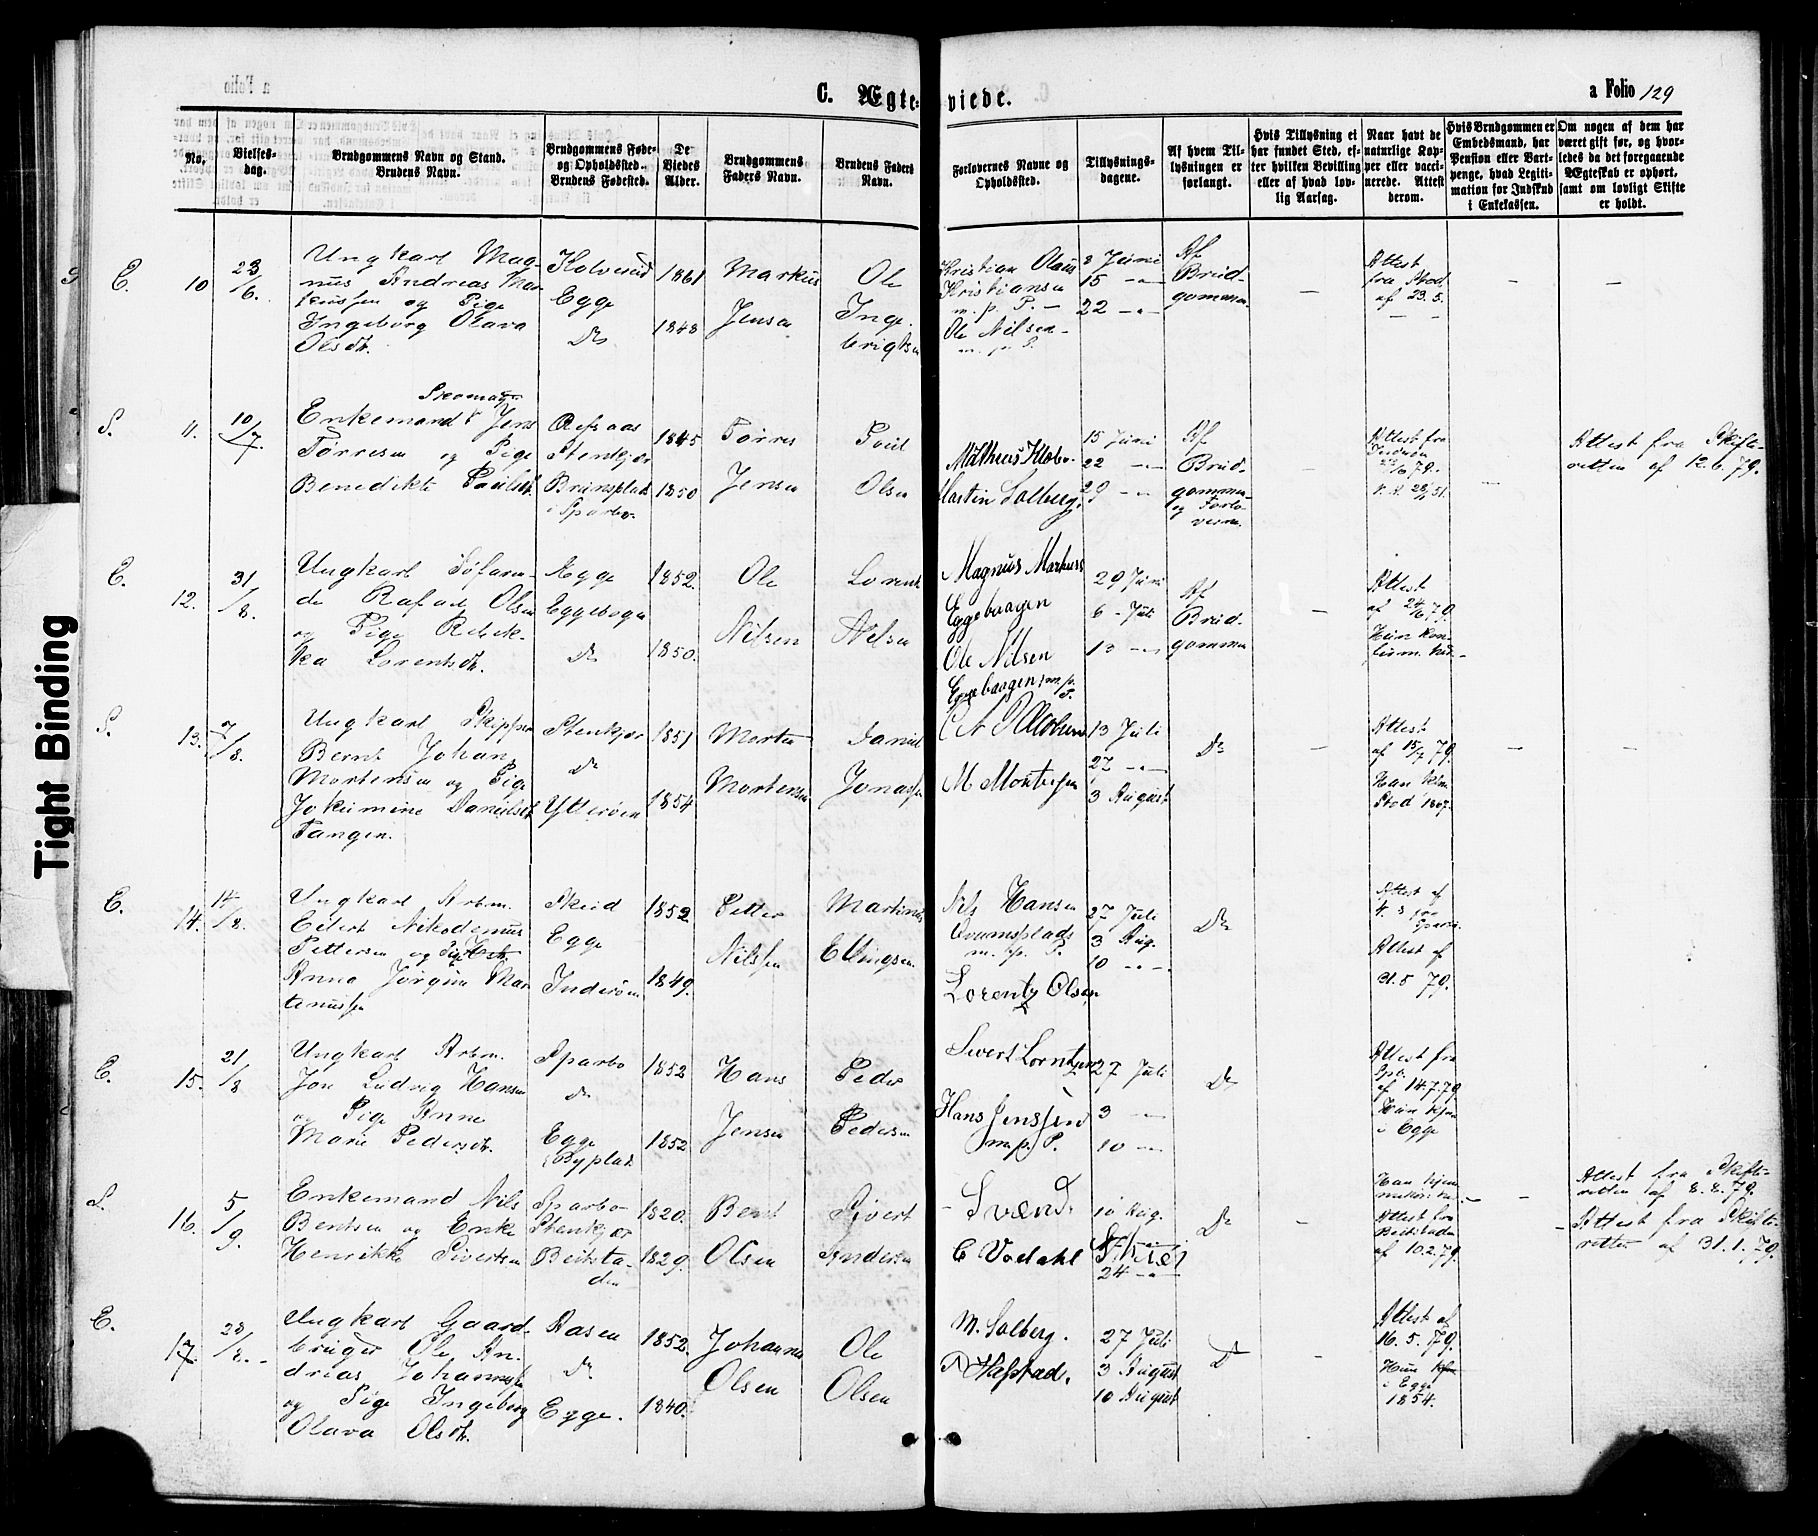 Tight Binding
C. Ægte-
viede.
a Folio 129
No.
Vielses-
dag.
Brudgommens Navn og Stand.
Brudens Navn.
Brudgommens Føde-
og Opholdssted.
Brudens Fødested.
De
Viedes
Alder.
Brudgommens
Faders Navn.
Brudens Faders
Navn.
Forlovernes Navne og
Opholdssted.
Tillysnings-
dagene.
Af hvem Til-
lysningen er
forlangt.
Hvis Tillysning ei
har fundet Sted, ef-
ter hvilken Bevilling
eller af hvad lov-
lig Aarsag.
Naar havt de
naturlige Kop-
per eller vacci-
nerede. Attest
derom.
Hvis Brudgommen er
Embedsmand, har
Pension eller Vart-
penge, hvad Legiti-
mation for Indskud
i Enkekassen.
Om nogen af dem har
været gift før, og hvor-
ledes da det foregaaende
Ægteskab er ophørt,
samt om lovligt Skifte
er holdt.
E.
10
23/6.
Ungkarl Mag-
nus Andreas Mar-
kussen og Pige
Ingeborg Olava
Olsdt.
Kolvereid
Egge
Do
1861
1848
Markus
Jensen
Ole
Inge-
brigtsen
Kristian Olaus
Kristiansen
m. p. P. -
Ole Nilsen
m. p. P.
8 Juni
15 -"-
22 -"-
Af
Brud-
gommen
-
Attest
fra Stod
af 23. 5.
-
-
S.
11.
10/7.
Skomager
Enkemand Jens
Torresen og Pige
Benedikte Paulsdt.
Stenkjær
Brunsplads
i Sparbo.
1845
1850
Torres
Jensen
Paul
Olsen
Matheus Klebo.
Martin Salberg.
15 Juni
22 -"-
29 -"-
Af
Brud-
gommen
og Forlo-
verne.
-
Attest fra
-
Attest fra Skifte-
retten af 12. 6. 79.
E.
12.
31/8.
Ungkarl Søfaren-
de Rafael Olsen
og Pige Rebek-
ka Lorentsdt.
Egge
Eggebogen
Do
1852.
1850.
Ole
Nilsen
Lorents
Nilsen
Magnus Markuss
Eggebaagen
Ole Nilsen
Eggebaagen m. p. P.
29 Juni
6 - Juli
13 -"-
Af
Brud-
gommen
-
Attest
af 24/6 79.
S.
13.
7/8.
Ungkarl Skipper
Bernt Johan
Mortensen og Pige
Jokumine Danielsdt.
Tangen.
Stenkjær
Do
Ytterøen
1851
1854
Morten
Mortensen
Daniel
Jonassen
M Mortensen
13 Juli
27 -"-
3 August
Do
-
Attest
af 15/7 79.
Stod 1867.
-
-
E.
14.
14/8.
Ungkarl Arbm.
Eilert Nikodemus
Pettersen og Pige
Anna Jørgine Mar-
tinussen
Skeid
Egge
Inderøen
1852.
1849.
Petter
Nilssen
Martinus
Ellingsen
Nils Hansen
Qvamsplads
m. p. P.
Lorentz Olsen
27 Juli
3 Aug.
10 -"-
Do
Attest af
4. 3 fra
Sparbo
Attest af
21. 5 79.
E.
15.
21/8
Ungkarl Arbm.
Jon Ludvig Hansen
og Pige Anne
Marie Pedersdt.
Sparbo
Do
Egge
Byplads
1852
1852
Hans
Jensen
Peder
Pedersen
Sivert Lorntzen
Hans Jenssen
m. p. P.
27 Juli
3 -"-
10 -"-
Do
Attest fra
af 14. 7. 79
i Egge
S.
16.
5/9.
Enkemand Nils
Bentsen og Enke
Henrikke Sivertsen
Sparbo-
Stenkjær
Beitsta-
den
1820.
1829.
Bent
Olsen
Sivert
Andersen
Svend.
C Vodahl
10 Aug.
24 -"-
Do
-
Attest fra
Beitstaden
af 10. 2. 79.
-
Attest fra Skifte-
retten af 8. 8. 79.
Attest fra Skifte-
retten af 31. 1. 79.
E.
17.
28/8.
Ungkarl Gaard-
bruger Ole An-
drias Johannsen
og Pige Ingeborg
Olava Olsdt.
Aasen
Do
Egge.
1852.
1840.
Johannes
Olsen
Ole
Olsen
M. Salberg.
Hafstad.
27 Juli
3 August
10 August
Do
-
Attest af
16. 5. 79.
i Egge
1854.